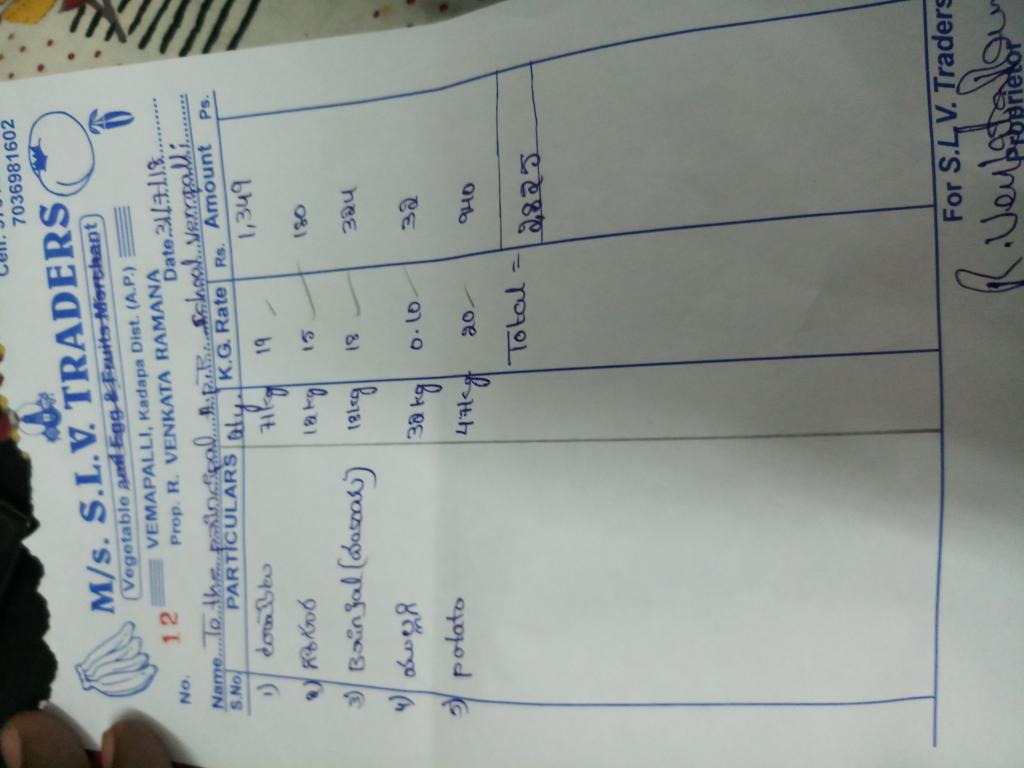 7036981602
M/s. S.L.V. TRADERS
Vegetable and Egg & Fruits Merchant
VEMAPALLI, Kadapa Dist. (A.P.)
Prop. R. VENKATA RAMANA
No. 12 Date 31/7/18
Name To the principal A.P.R. School Vempalli
S.No. PARTICULARS Qty. K.G. Rate Rs. Amount Ps.
1) 71kg 19 1,349
2) 12kg 15 180
3) Brinjal 18kg 18 324
4) 32kg 0.10 32
5) potato 47kg 20 940
Total = 2,825
For S.L.V. Traders
Proprietor